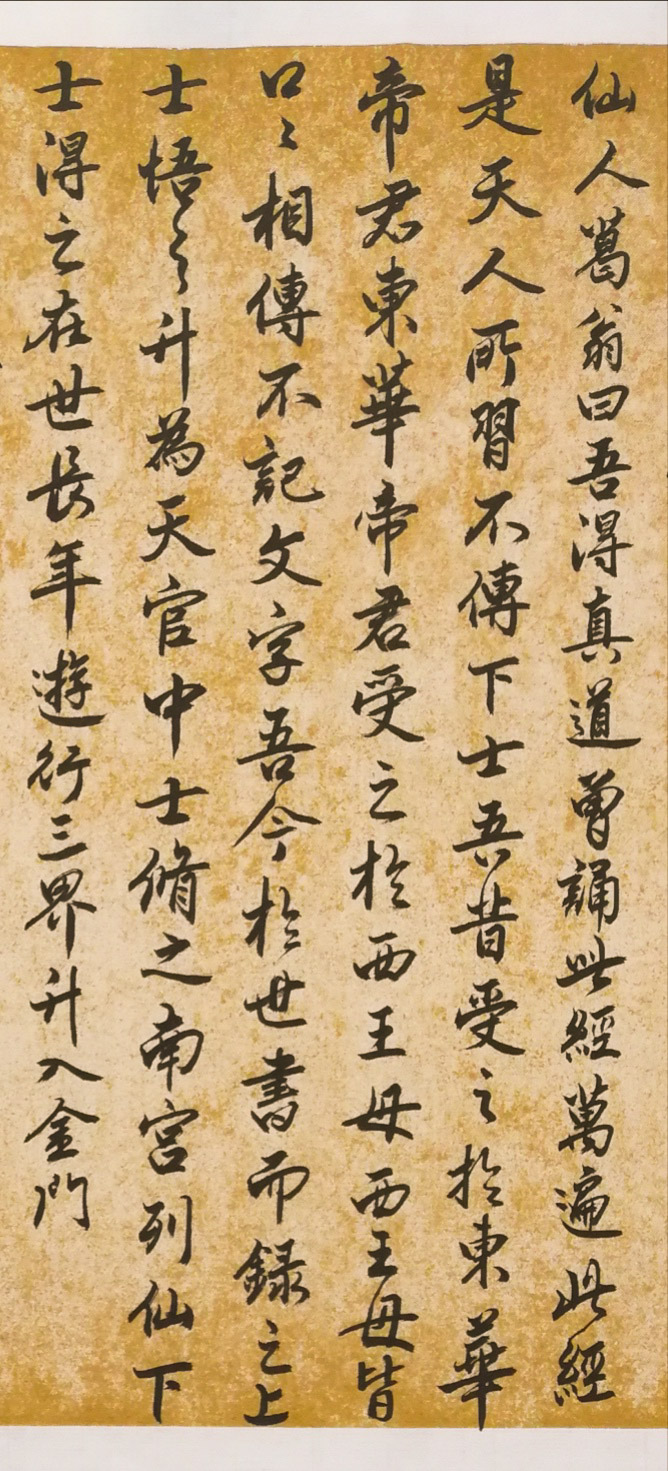 仙人葛翁曰吾得真道曾誦此經萬遍此經
是天人所習不傳下士吾昔受之於東華
帝君東華帝君受之於西王母西王母皆
口〻相傳不記文字吾今於世書而録之上
士悟之升為天官中士脩之南宮列仙下
士得之在世長年遊行三界升入金門